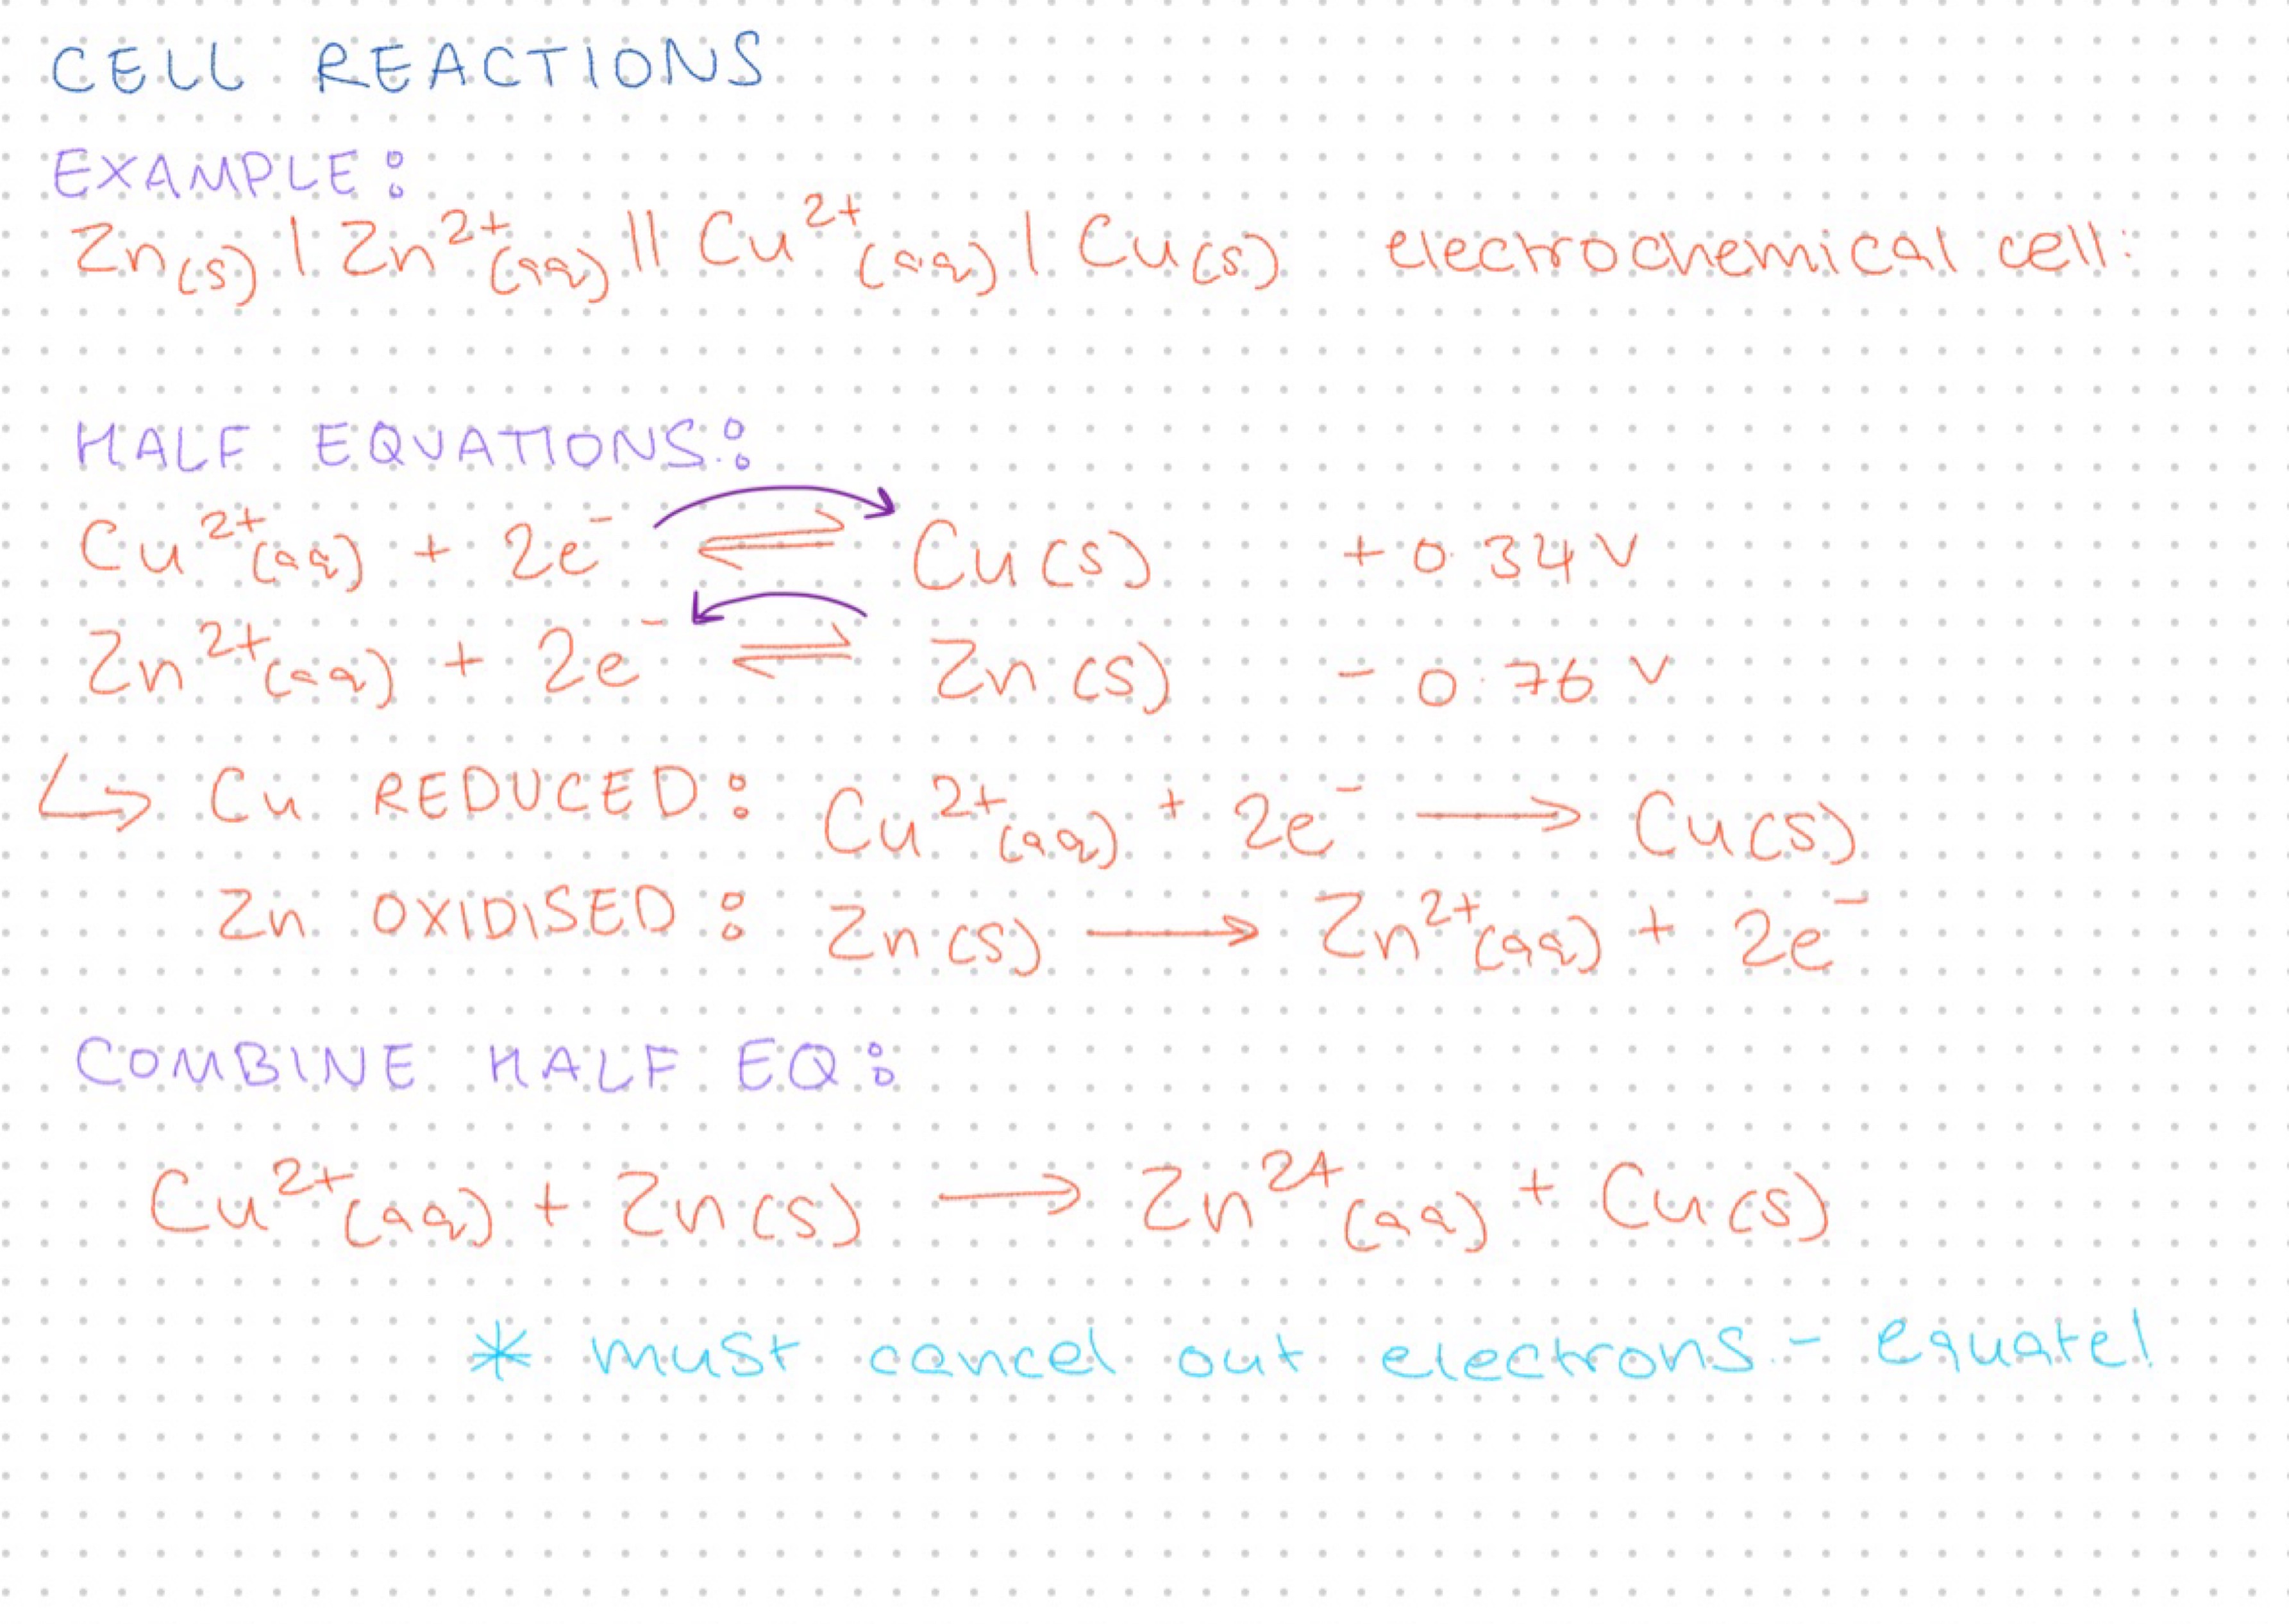 CELL REACTIONS
EXAMPLE:
Zn(s) | Zn²⁺(aq) || Cu²⁺(aq) | Cu(s) electrochemical cell:
HALF EQUATIONS:
Cu²⁺(aq) + 2e⁻ ⇌ Cu(s) +0.34V
Zn²⁺(aq) + 2e⁻ ⇌ Zn(s) -0.76V
↳ Cu REDUCED: Cu²⁺(aq) + 2e⁻ → Cu(s)
Zn OXIDISED: Zn(s) → Zn²⁺(aq) + 2e⁻
COMBINE HALF EQ:
Cu²⁺(aq) + Zn(s) → Zn²⁺(aq) + Cu(s)
* must cancel out electrons - equate!